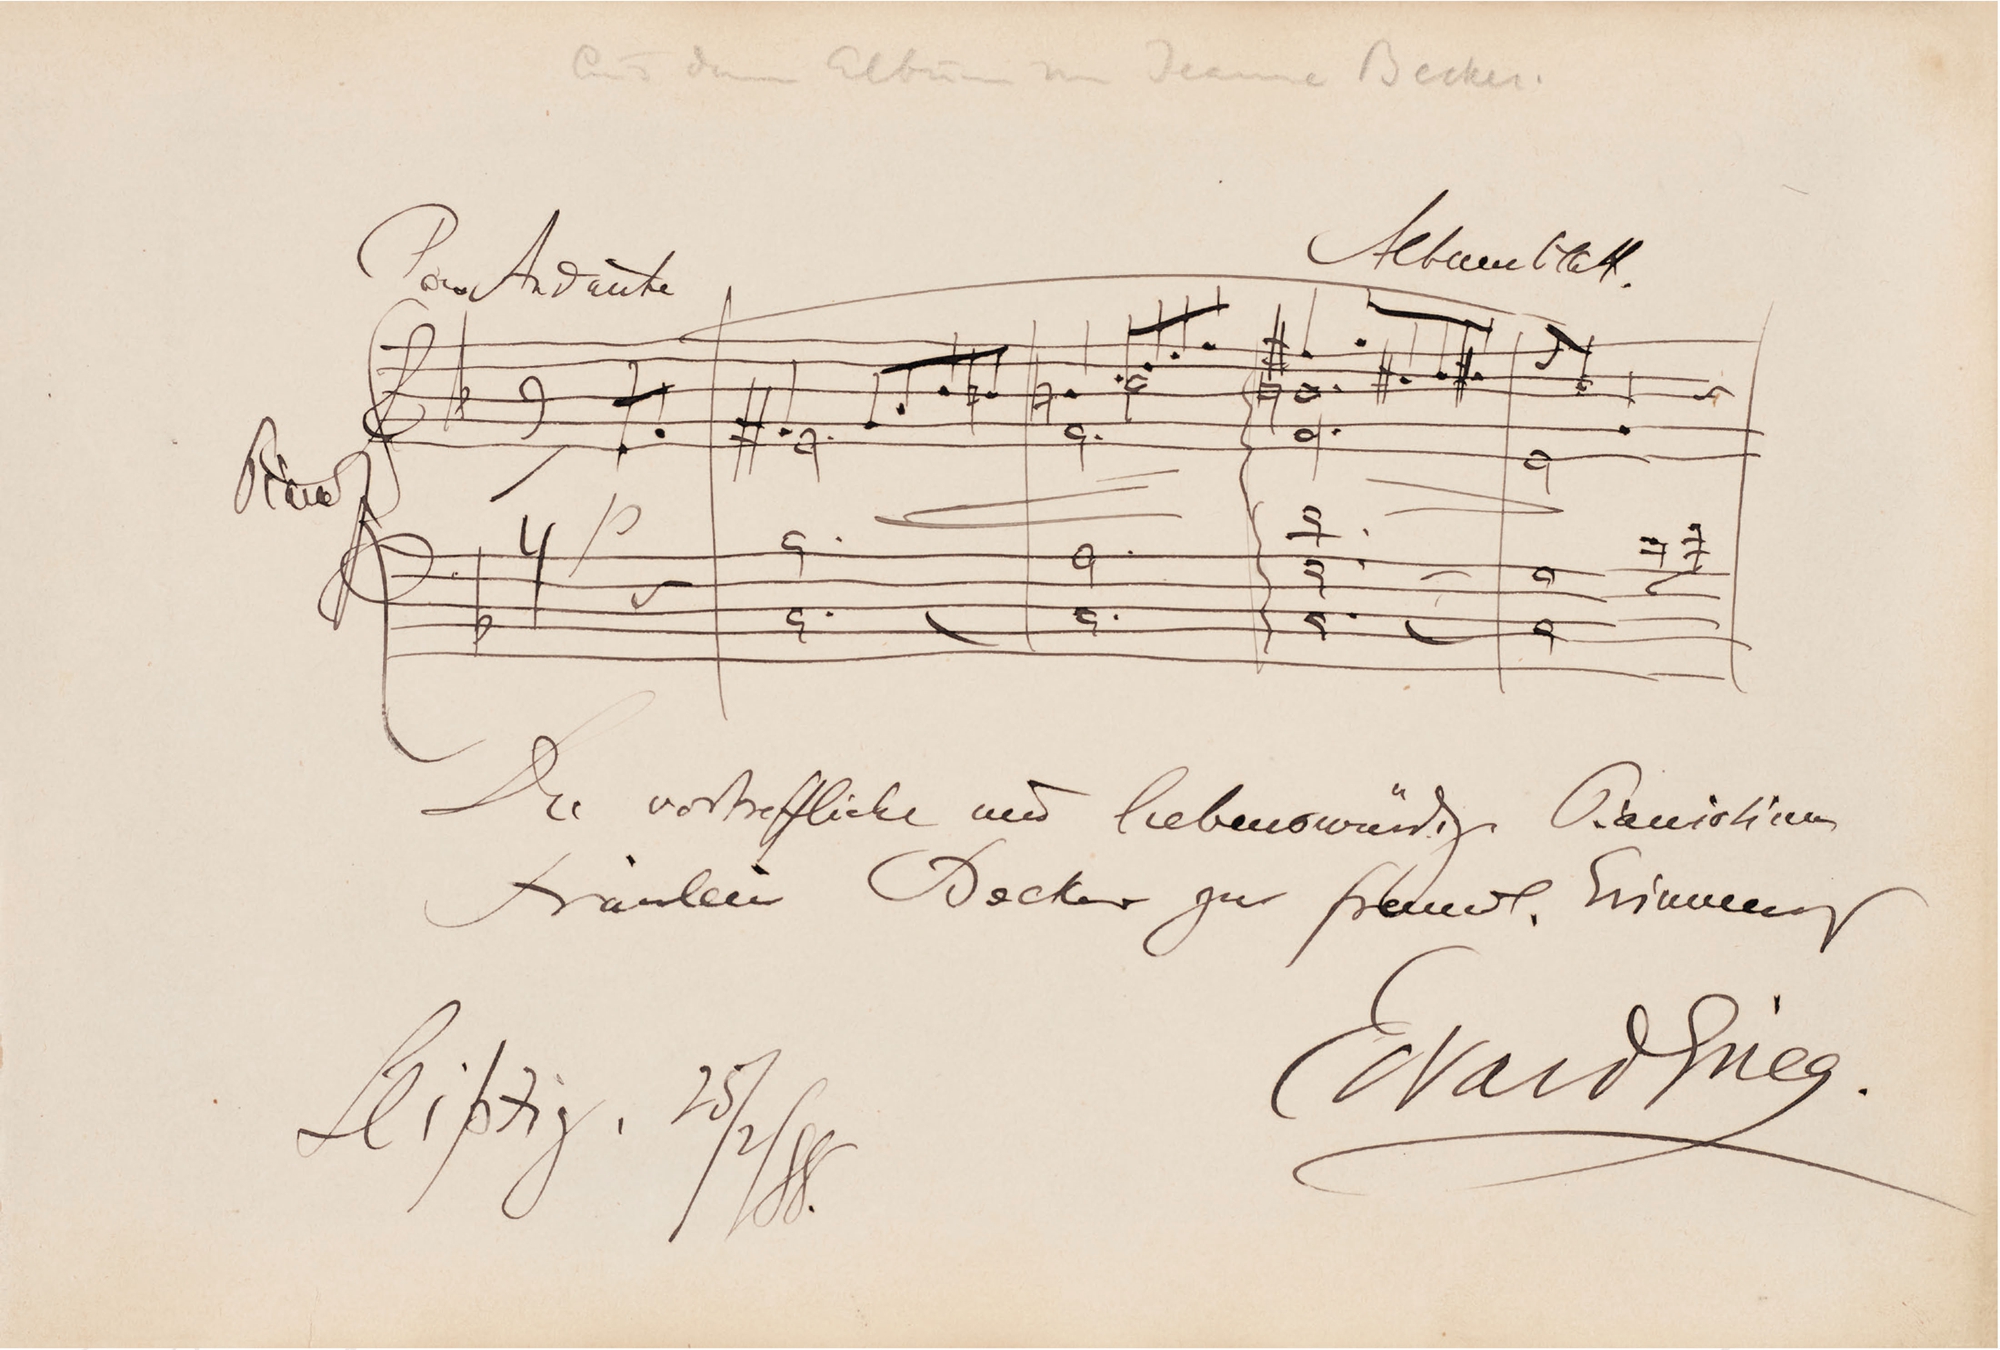 Aus dem Album von Jeanne Becker.
Poco Andante
Albumblatt.
Piano
4
p
Der vortreffliche und liebenswürdige Pianistinn
Fräulein Becker zur freundl. Erinnerung
Edvard Grieg.
Leipzig. 25/2/88.